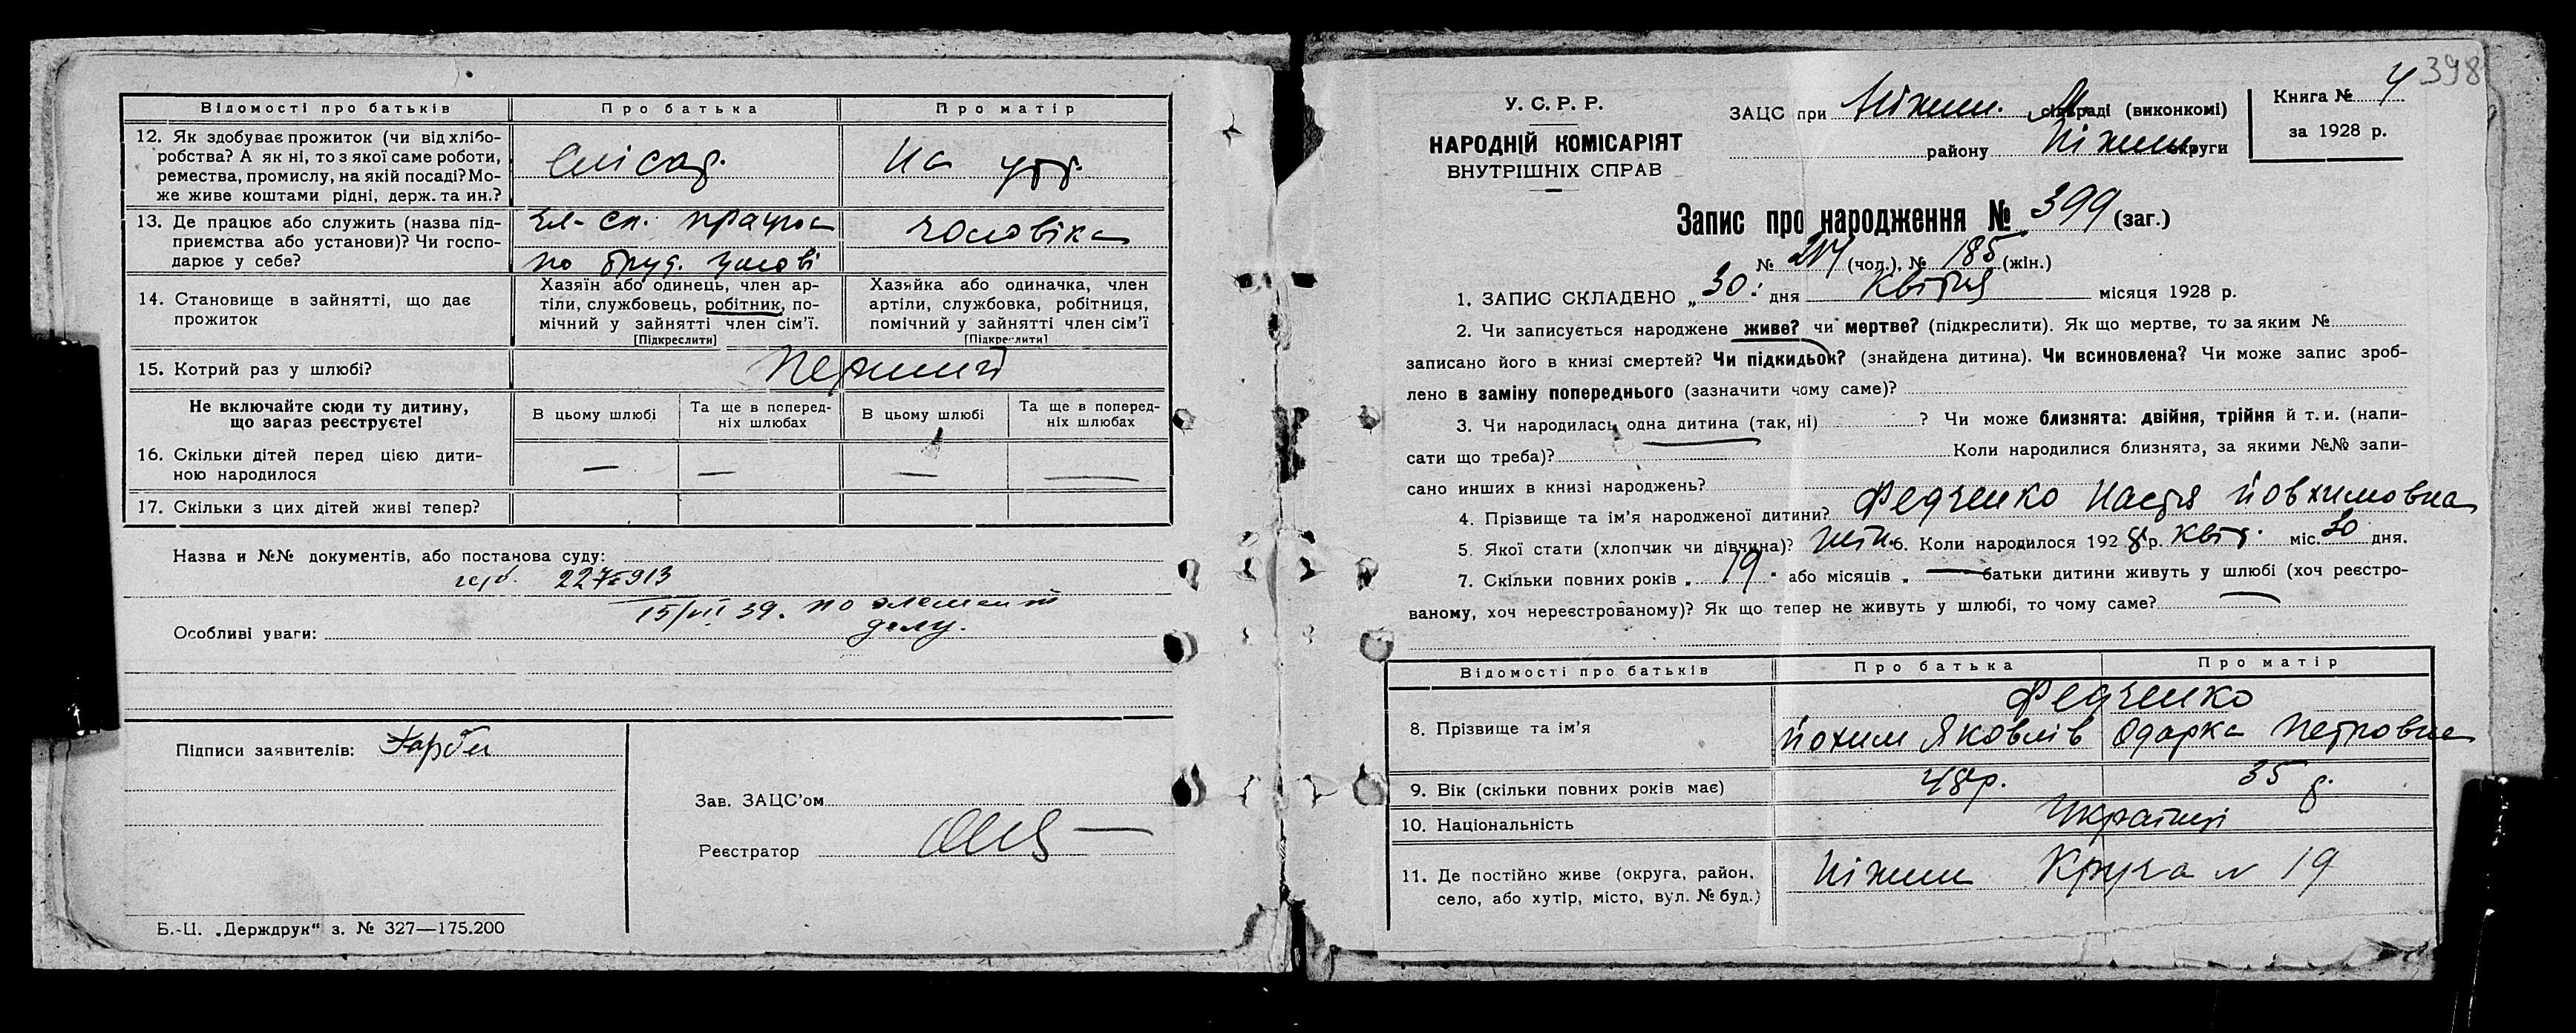 Відомості про батьків Про батька Про матір
12. Як здобуває прожиток (чи від хлібо-
робства? А як ні, то з якої саме роботи,
ремества, промислу, на якій посаді? Мо-
же живе коштами рідні, держ. та ин.?
На утр.
13. Де працює або служить (назва під-
приємства або установи)? Чи госпо-
дарює у себе?
чл. сп. працює чоловіка
по труд. умові
14. Становище в зайнятті, що дає
прожиток
Хазяїн або одинець, член ар-
тіли, службовець, робітник, по-
мічний у зайнятті член сім'ї.
[Підкреслити]
Хазяйка або одиначка, член
артіли, службовка, робітниця,
помічний у зайнятті член сім'ї
[Підкреслити]
15. Котрий раз у шлюбі? Перший
Не включайте сюди ту дитину,
що зараз реєструєте!
В цьому шлюбі
Та ще в поперед-
ніх шлюбах
В цьому шлюбі
Та ще в поперед-
ніх шлюбах
16. Скільки дітей перед цією дити-
ною народилося — — — —
17. Скільки з цих дітей живі тепер?
Назва и №№ документів, або постанова суду:
15/VII 39. по элемент
делу.
Особливі уваги:
Підписи заявителів:
Зав. ЗАЦС'ом
Реєстратор
Б.-Ц. „Держдрук“ з. № 327—175.200
398
У. С. Р. Р.
НАРОДНІЙ КОМІСАРІЯТ
ВНУТРІШНІХ СПРАВ
ЗАЦС при Ніжин. М. сільраді (виконкомі)
району Ніжин. округи
Книга № 4
за 1928 р.
Запис про народження № 399 (заг.)
№ 214 (чол.), № 185 (жін.)
1. ЗАПИС СКЛАДЕНО „30“ дня Квітня місяця 1928 р.
2. Чи записується народжене живе? чи мертве? (підкреслити). Як що мертве, то за яким №
записано його в книзі смертей? Чи підкидьок? (знайдена дитина). Чи всиновлена? Чи може запис зроб-
лено в заміну попереднього (зазначити чому саме)?
3. Чи народилась одна дитина (так, ні) ? Чи може близнята: двійня, трійня й т. и. (напи-
сати що треба)? Коли народилися близнята, за якими №№ запи-
сано инших в книзі народжень?
4. Прізвище та ім'я народженої дитини? Федченко Настя Йовхимовна
5. Якої стати (хлопчик чи дівчина)? жін. 6. Коли народилося 1928 р. Квіт. міс. 20 дня.
7. Скільки повних років „ 19 “ або місяців „ — батьки дитини живуть у шлюбі (хоч реєстро-
ваному, хоч нереєстрованому)? Як що тепер не живуть у шлюбі, то чому саме? —
Відомості про батьків Про батька Про матір
Федченко
8. Прізвище та ім'я Йохим Яковлів Одарка Петровна
9. Вік (скільки повних років має) 48 р. 35 р.
10. Національність Українці
11. Де постійно живе (округа, район,
село, або хутір, місто, вул. № буд.)
Ніжин Круча № 19